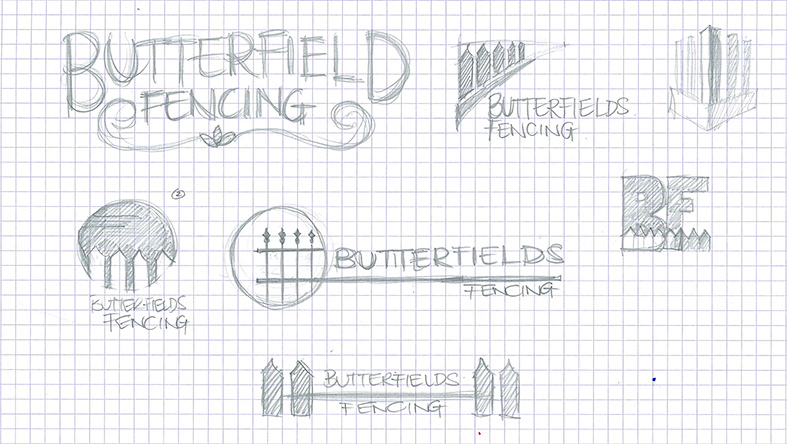 BUTTERFIELD
FENCING
BUTTERFIELDS
FENCING
BF
2
BUTTERFIELDS
FENCING
BUTTERFIELDS
FENCING
BUTTERFIELDS
FENCING